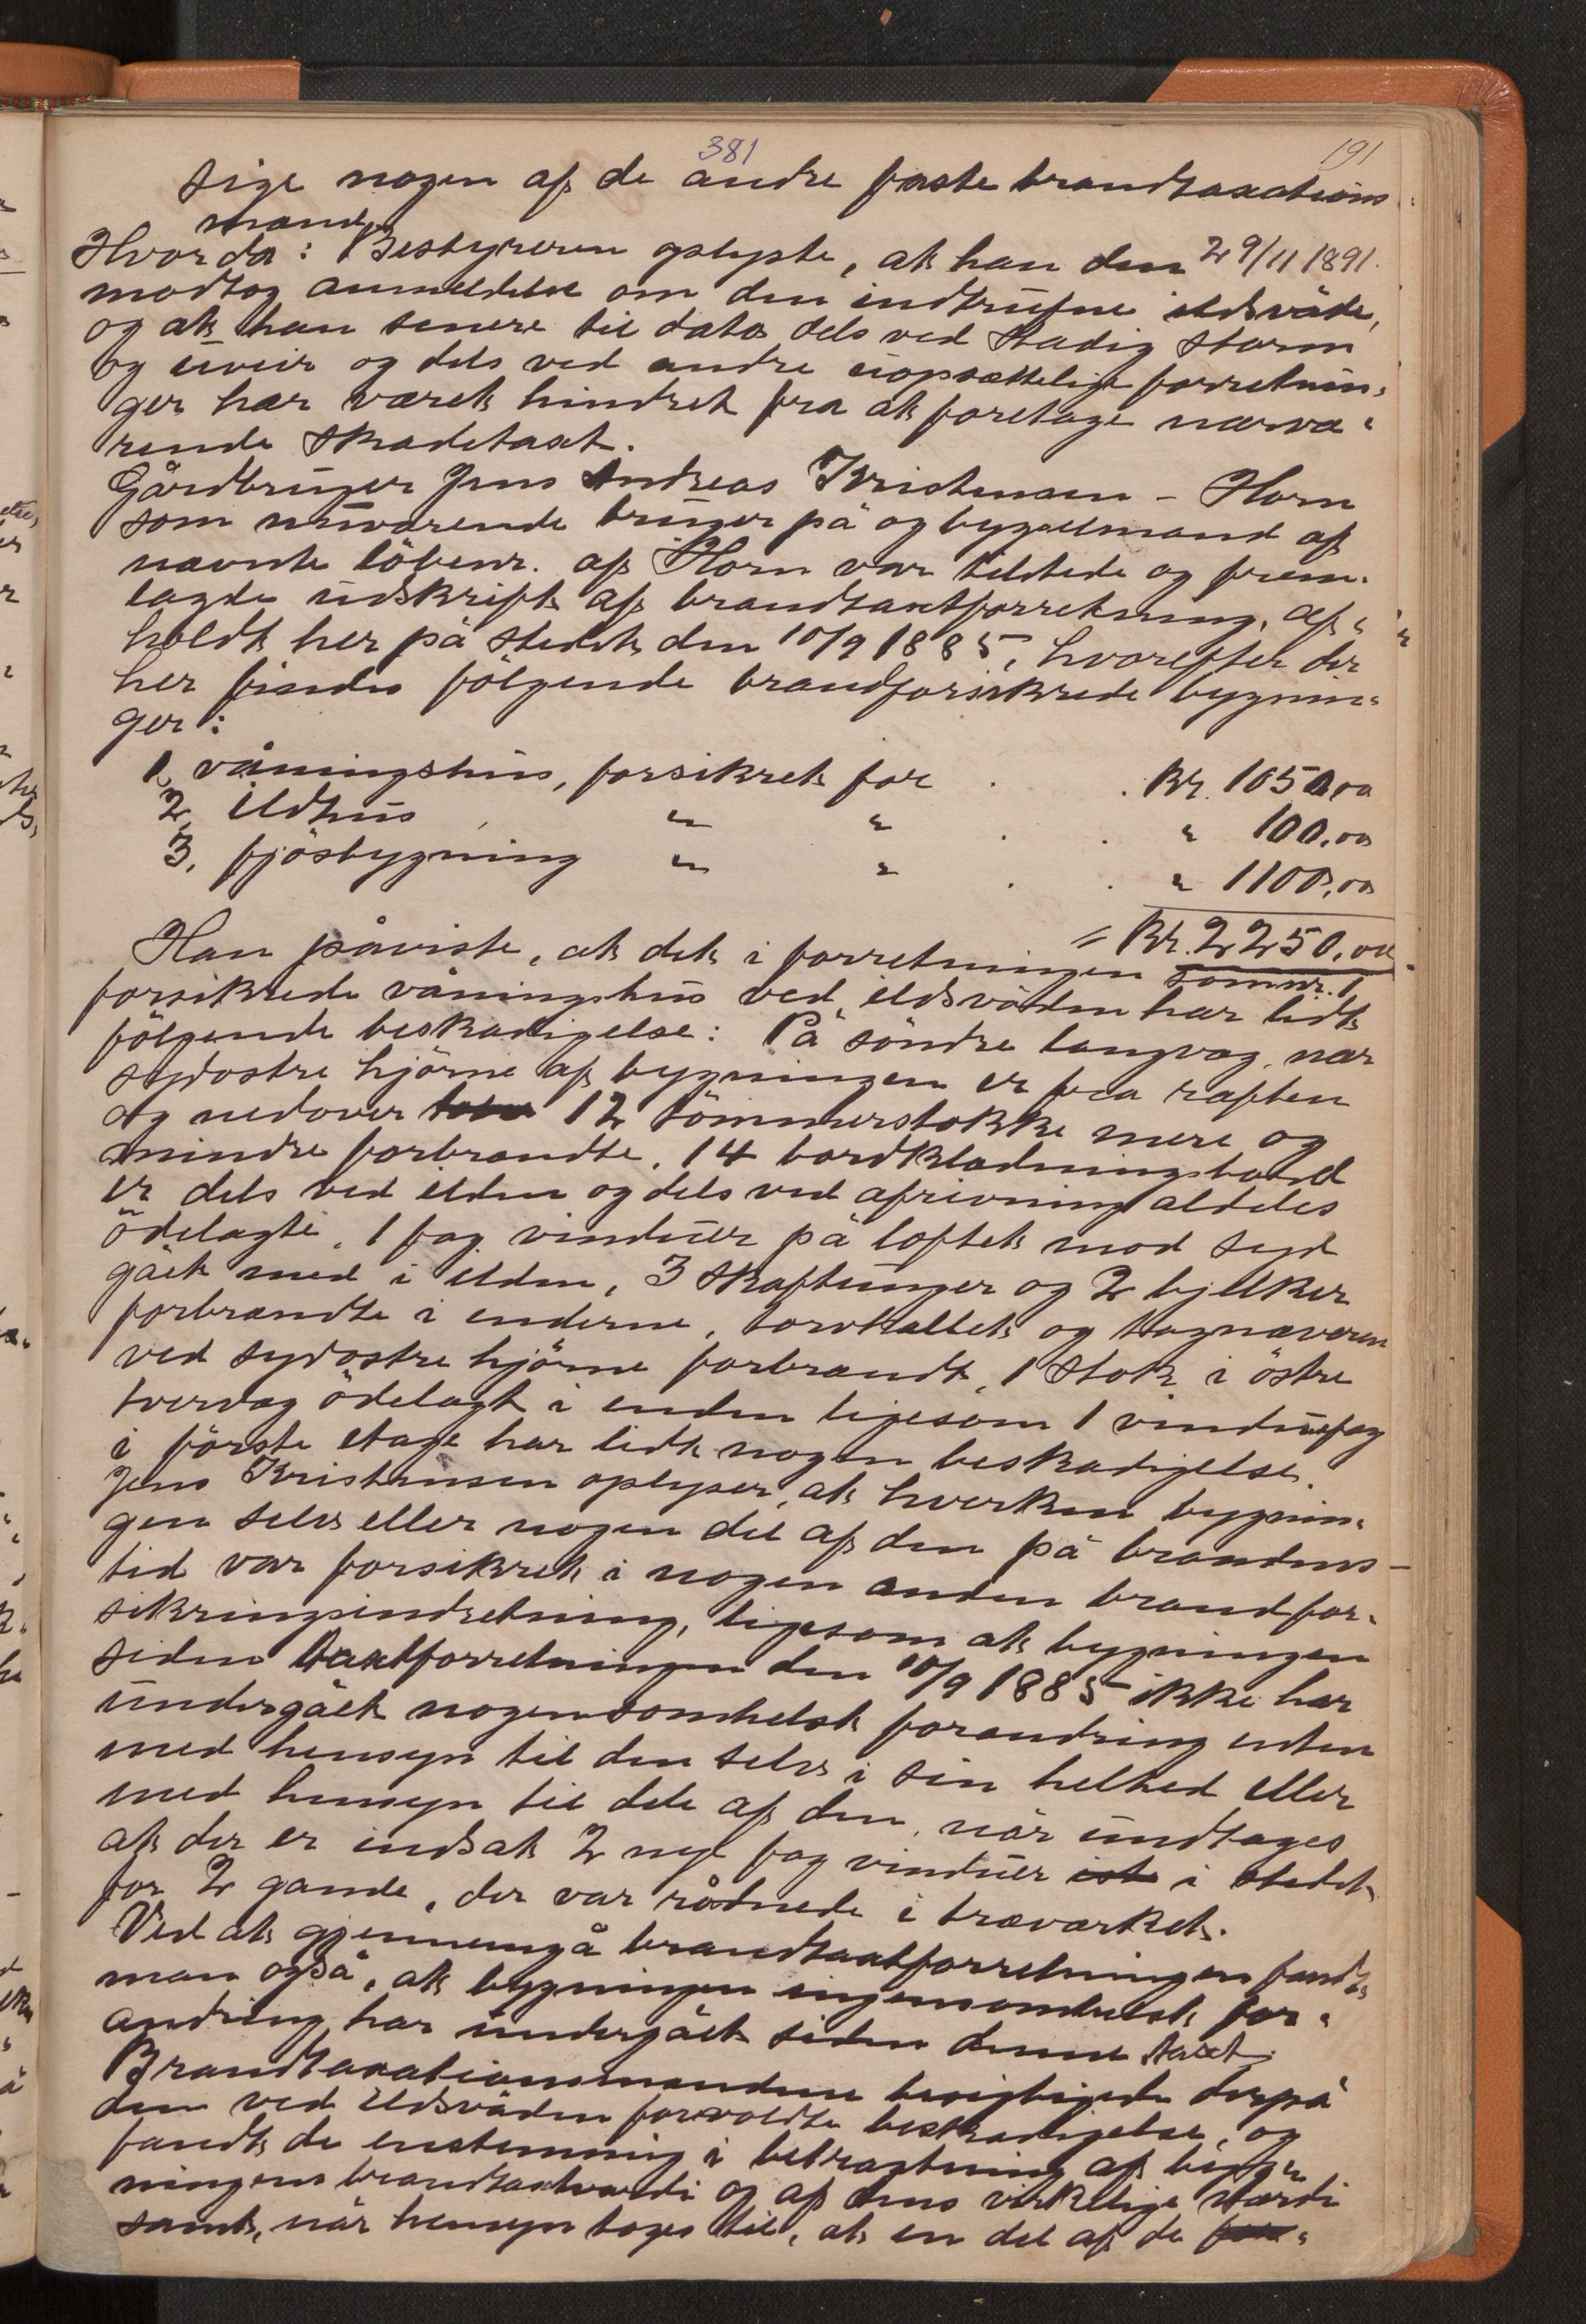 381
191
sige nogen af de andre faste brandtaxations
mænd.
Hvorda: Bestyreren oplyste, at han den 29/11 1891.
modtog anmeldelse om den indtrufne ildsvåde,
og at han senere til dato dels ved stadig storm
og uveir og dels ved andre uopsættelige forretnin-
ger har været hindret fra at foretage nærvæ-
rende skadetaxt.
Gårdbruger Jens Andreas Kristensen - Horn
som nuværende bruger på og bygselmand af
nævnte löbenr. af Horn var tilstede og frem-
lagde udskrift af brandtaxtforretning, af-
holdt her på stedet den 10/9 1885, hvorefter der
her findes fölgende brandforsikrede bygnin-
ger:
1, våningshus, forsikret for . . Kr. 1050,00
2, ildhus " " . . " 100,00
3, fjösbygning " " . . " 1100,00
= Kr. 2250,00
Han påviste, at det i forretningen som nr. 1
forsikrede våningshus ved ildsvåden har lidt
fölgende beskadigelse: På söndre langvæg, nær
sydostre hjörne af bygningen er fra raften
og nedover 12 tömmerstokke mere og
mindre forbrændte, 14 bordklædningsbord
er dels ved ilden og dels ved afrivning aldeles
ödelagte, 1 fag vinduer på loftet mod syd
gået med i ilden, 3 skaftunger og 2 bjelker
forbrændte i enderne, torvhaldet og tagnæveren
ved sydostre hjörne forbrændt, 1 stok i östre
tvervæg ödelagt i enden ligesom 1 vinduefag
i förste etage har lidt nogen beskadigelse.
Jens Kristensen oplyser, at hverken bygnin-
gen selv eller nogen del af den på brandens-
tid var forsikret i nogen anden brandfor-
sikringsindretning, ligesom at bygningen
siden taxtforretningen den 10/9 1885 ikke har
undergået nogensomhelst forandring enten
med hensyn til den selv i sin helhed eller
med hensyn til dele af den, når undtages
at der er indsat 2 nye fag vinduer i stedet
for 2 gamle, der var rådnede i træværket.
Ved at gjennemgå brandtaxtforretningen fandt
man også, at bygningen ingensomhelst for-
andring har undergået siden denne taxt.
Brandtaxationsmændene besigtigede derpå
den ved ildsvåden forvoldte beskadigelse, og
fandt de enstemmig i betragtning af byg-
ningens brandtaxtværdi og af dens virkelige værdi
samt, når hensyn tages til, at en del af de